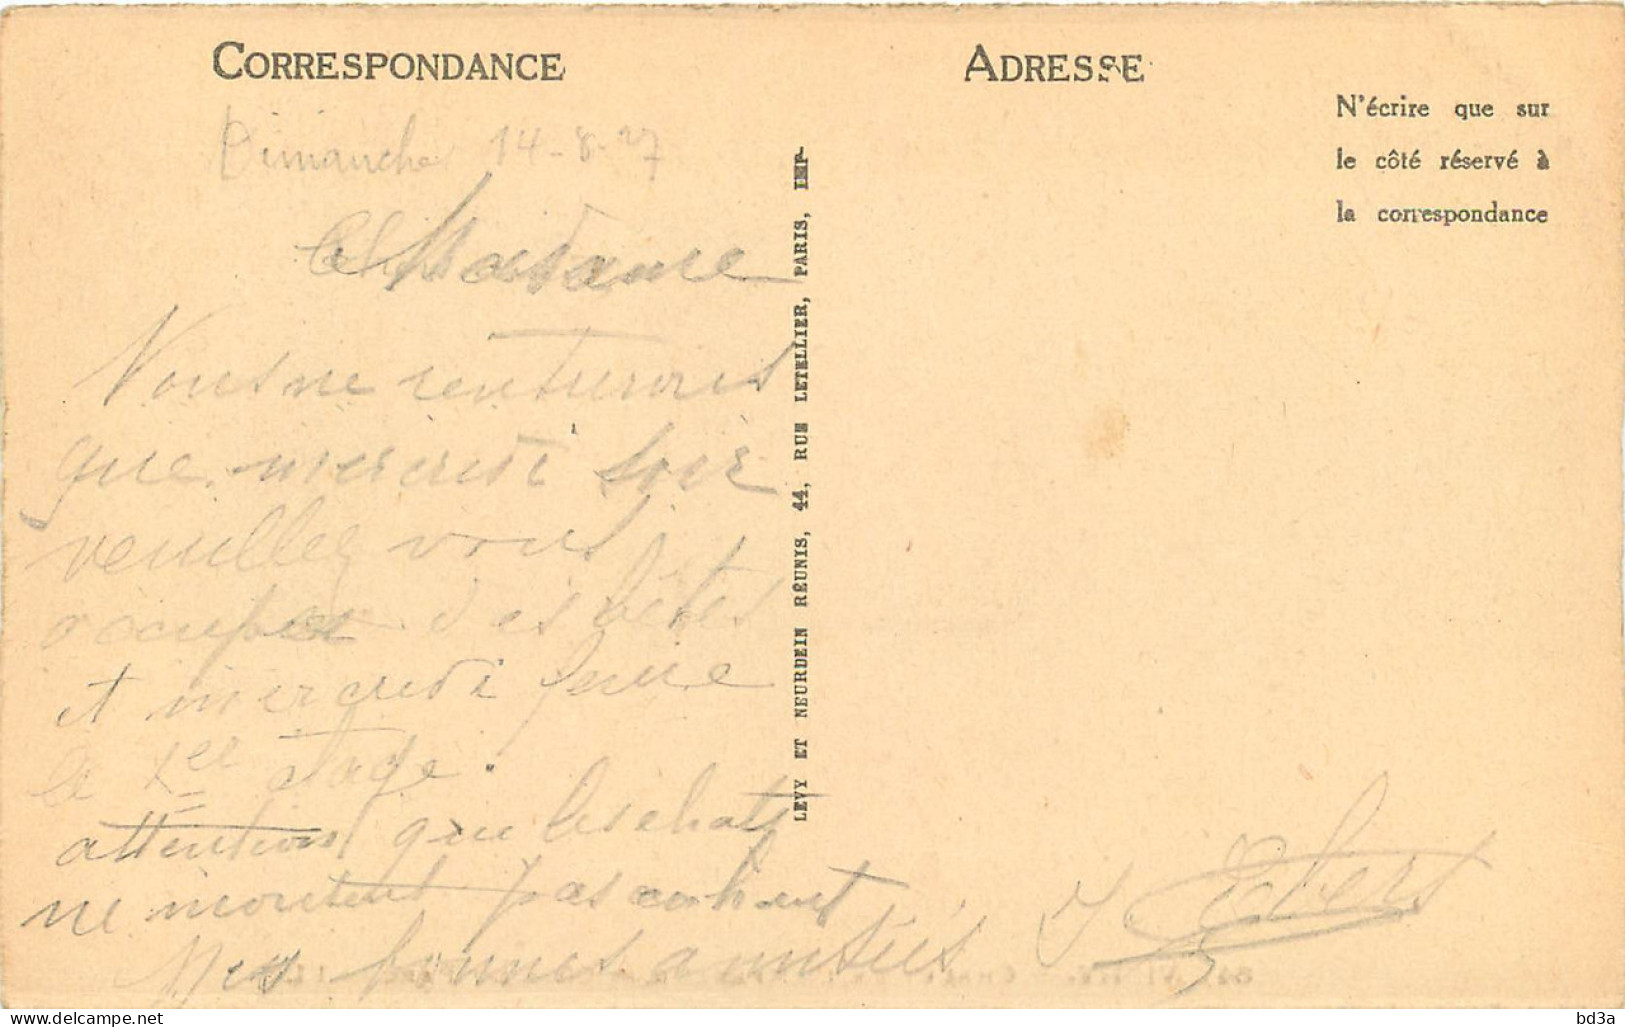 CORRESPONDANCE
Dimanche 14-8-27
Chère Madame
Nous ne rentrerons
que mercredi soir
veuillez vous
occuper des bêtes
et mercredi
le 1er étage.
attention que les chats
ne montent pas en haut
Mes bonnes amitiés
J Ebers
LEVY ET NEURDEIN RÉUNIS, 44, RUE LETELLIER, PARIS, IMP.
ADRESSE
N'écrire que sur
le côté réservé à
la correspondance
delcampe.net
bd3a